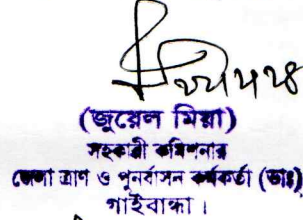 (জুয়েল মিয়া)
সহকারী কমিশনার
জেলা ত্রাণ ও পুনর্বাসন কর্মকর্তা (ভাঃ)
গাইবান্ধা।